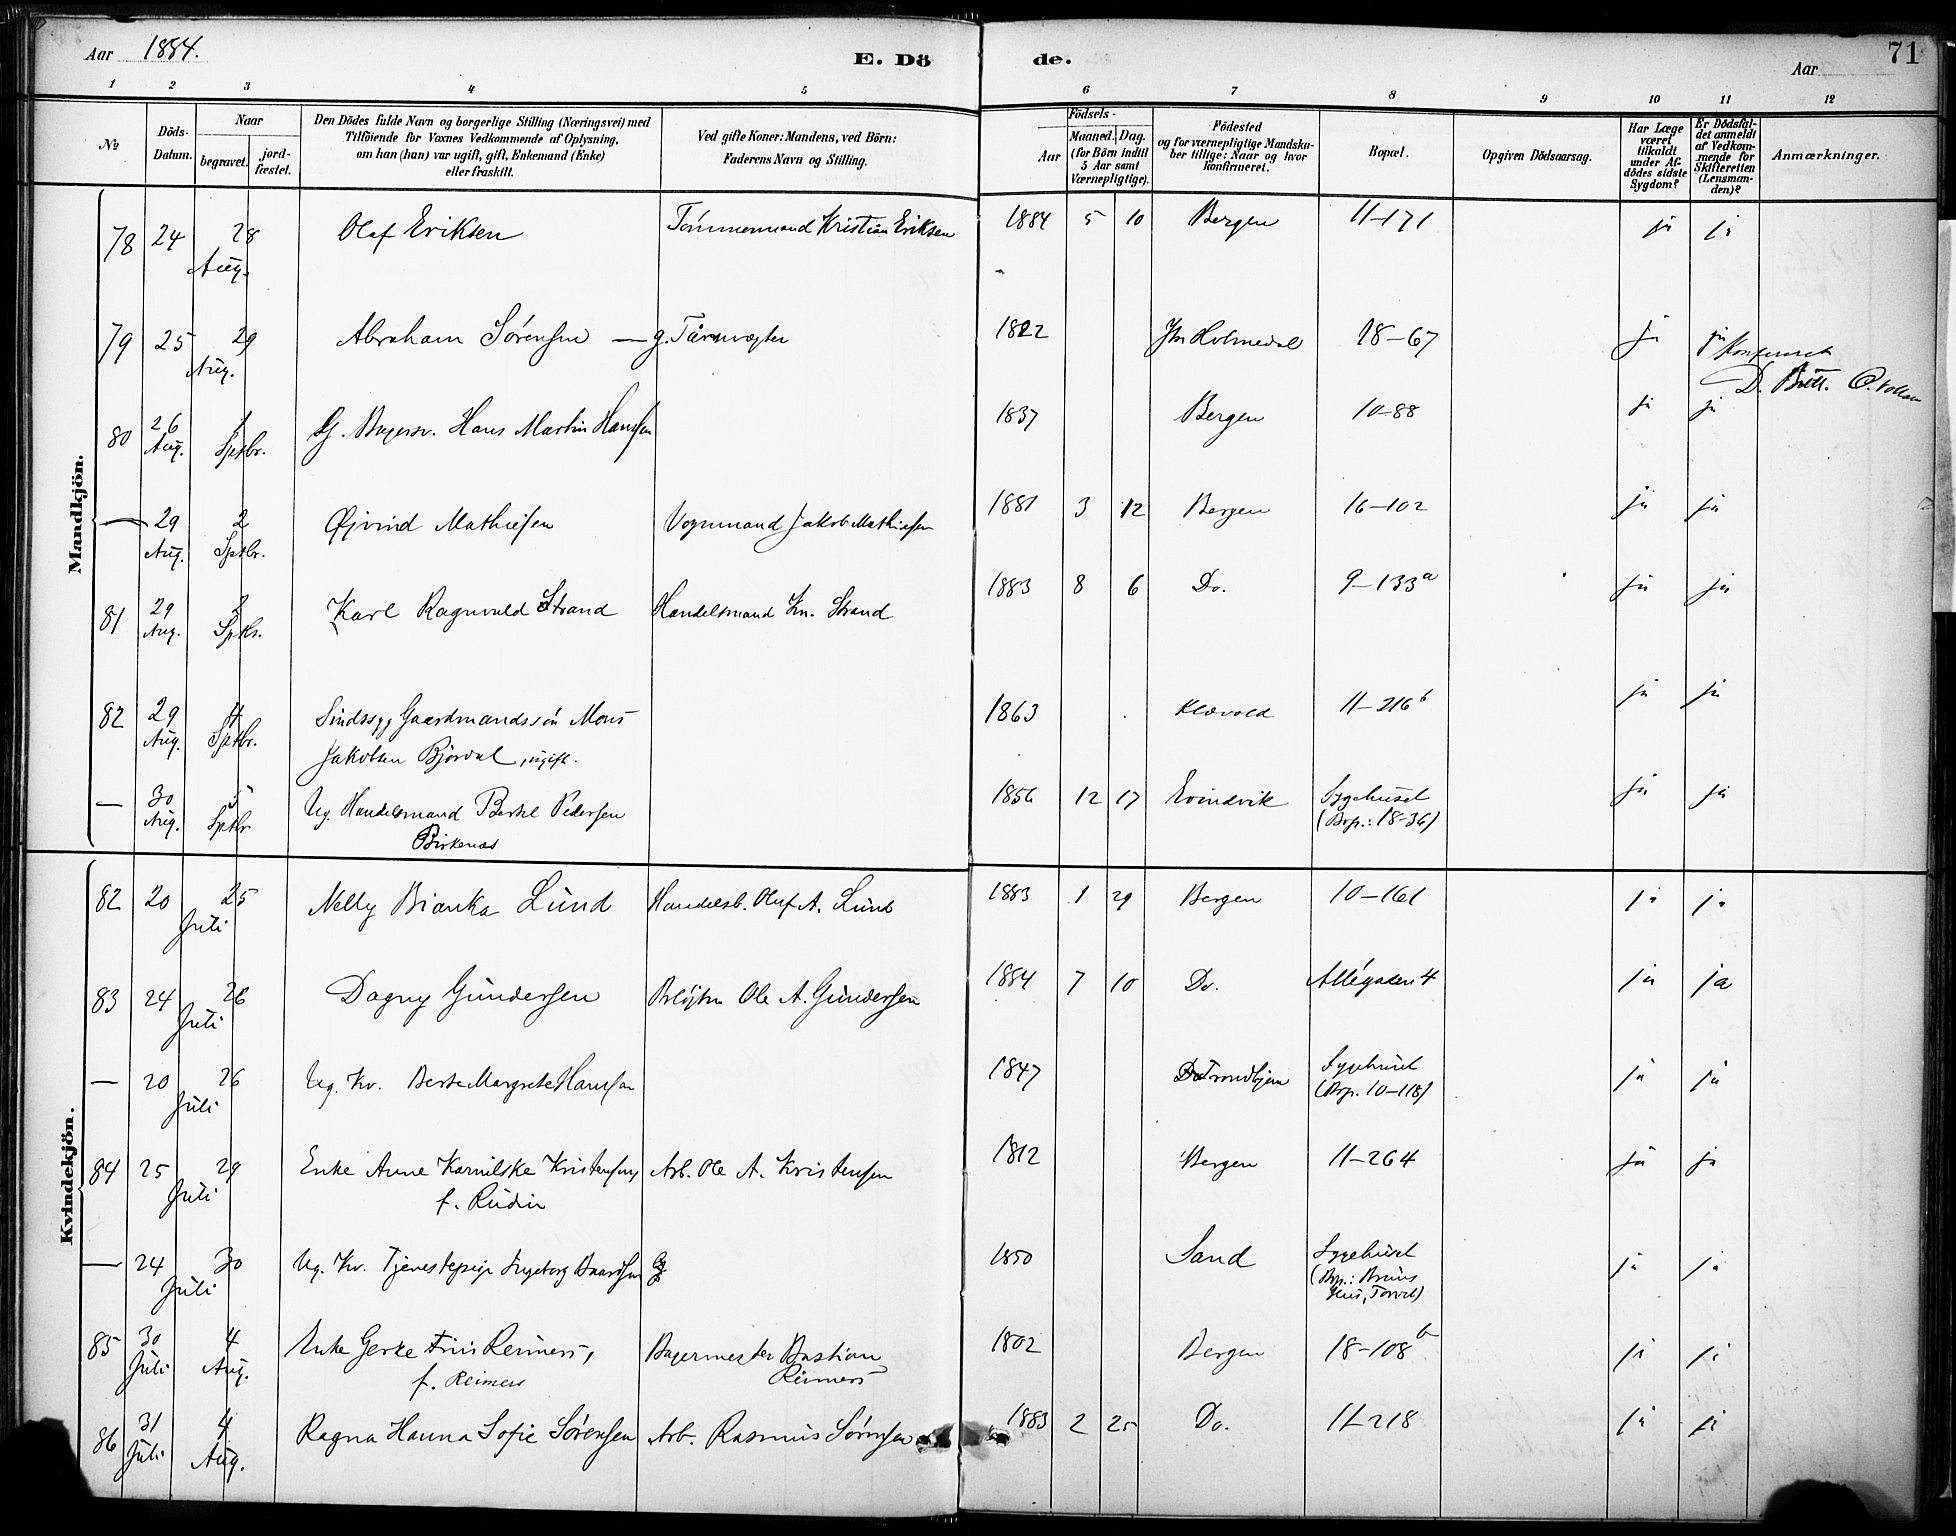 Aar 1884.
E. Dö
de.
Aar
71
1 2 3 4 5 6 7 8 9 10 11 12
№
Döds-
Datum.
Naar
begravet.
jord-
fæstet.
Den Dödes fulde Navn og borgerlige Stilling (Næringsvei) med
Tilföiende for Voxnes Vedkommende af Oplysning,
om han (hun) var ugift, gift, Enkemand (Enke)
eller fraskilt.
Ved gifte Koner: Mandens, ved Börn:
Faderens Navn og Stilling.
Födsels-
Aar
Maaned. Dag.
(for Börn indtil
5 Aar samt
Værnepligtige).
Födested
og for værnepligtige Mandska-
ber tillige: Naar og hvor
konfirmeret.
Bopæl.
Opgiven Dödsaarsag.
Har Læge
været
tilkaldt
under Af-
dödes sidste
Sygdom?
Er Dödsfal-
det anmeldt
af Vedkom-
mende for
Skifteretten
(Lensman-
den)?
Anmærkninger.
Mandkjön.
78 24 28 Olaf Eriksen Tømmermand Kristian Eriksen 1884 5 10 Bergen 11-171 ja ja
Aug.
79 25 29 Abraham Sørensen — g. Taarnvægter 1822 Ytr Holmedal 18-67 ja ja
Aug.
80 26 1 G. Bagersv. Hans Martin Hansen 1837 Bergen 10-88 ja ja
Aug. Sptbr.
— 29 2 Øjvind Mathiesen Vognmand Jakob Mathiesen 1881 3 12 Bergen 16-102 ja ja
Aug. Sptbr.
81 29 2 Karl Ragnvald Strand Handelsmand Kn. Strand 1883 8 6 Do. 9-133a ja ja
Aug. Sptbr.
82 29 4 Sindssyg Gaardmandssøn Mons 1863 Klævold 11-216b ja ja
Aug. Sptbr. Jakobsen Bjørdal, ugift.
— 30 5 Ug. Handelsmand Bertel Pedersen 1856 12 17 Evindvik Sygehuset ja ja
Aug. Sptbr Birkenæs (Bop.: 18-36)
Kvindekjön.
82 20 25 Nelly Bianka Lund Handelsb. Oluf A. Lund 1883 1 29 Bergen 10-161 ja ja
Juli
83 24 26 Dagny Gundersen Ole A. Gundersen 1884 7 10 Do. Allégaden 4 ja ja
Juli
— 20 26 Ug. Kv. Berte Margrete Hansen 1847 Trondhjem Sygehuset ja ja
Juli (Bop. 10-118)
84 25 29 Enke Anne Kornilske Kristensen, Arb. Ole A. Kristensen 1812 Bergen 11-264 ja ja
Juli f. Rudin
— 24 30 Ug. Kv. Tjenestepige Ingeborg Baardsen 1850 Sand Sygehuset ja ja
Juli (Bop.: Bruns
Hus, Torvet)
85 30 4 Enke Gerke Friis Reimers, Bagermester Bastian 1802 Bergen 18-108b ja ja
Juli Aug. f. Reimers Reimers
86 31 4 Ragna Hanna Sofie Sørensen Arb. Rasmus Sørensen 1883 2 25 Do. 11-218 ja ja
Juli Aug.